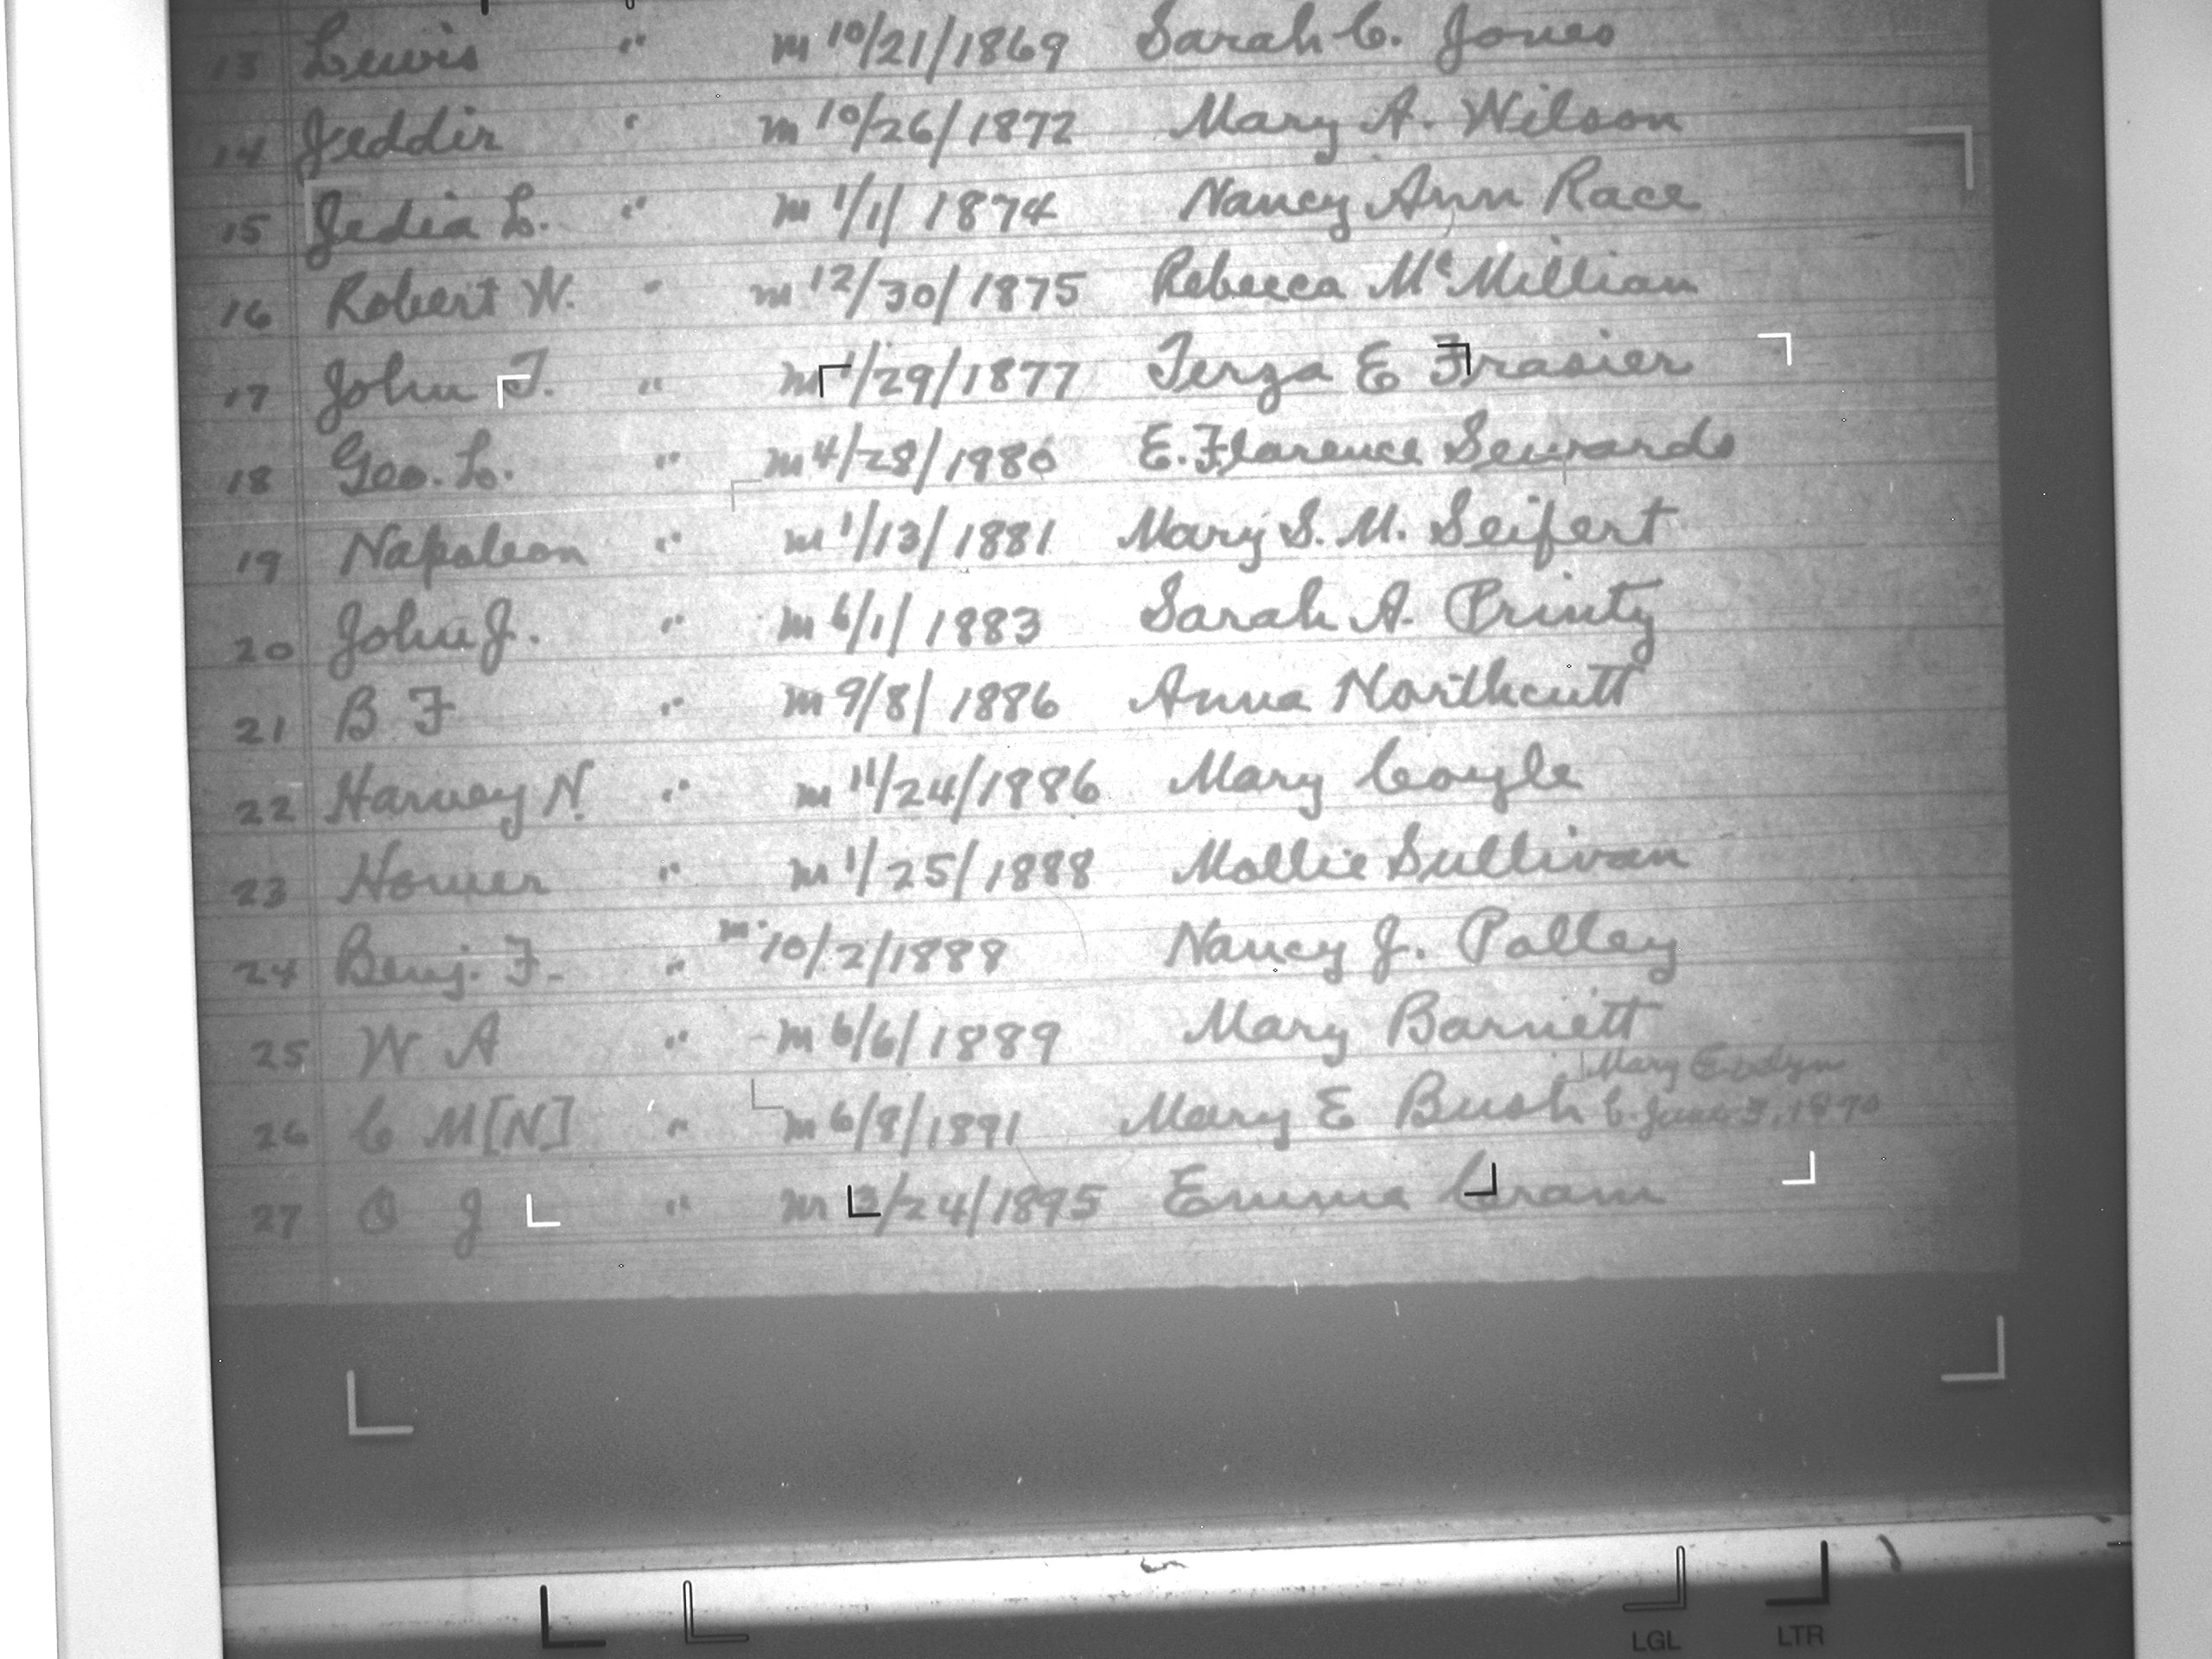 13 Lewis " m 10/21/1869 Sarah C. Jones
14 Jeddir " m 10/26/1872 Mary A. Wilson
15 Jedia L. " m 1/1/1874 Nancy Ann Race
16 Robert W. " m 12/30/1875 Rebecca McMillian
17 John T. " m 1/29/1877 Terza E Frasier
18 Geo. L. " m 4/28/1880 E. Florence Sewards
19 Napoleon " m 1/13/1881 Mary S. M. Seifert
20 John J. " m 6/1/1883 Sarah A. Printy
21 B F " m 9/8/1886 Anna Northcutt
22 Harvey N. " m 11/24/1886 Mary Coyle
23 Homer " m 1/25/1888 Mollie Sullivan
24 Benj. F. " m 10/2/1888 Nancy J. Polley
25 W A " m 6/6/1889 Mary Barnett
Mary
26 C M[N] " m 6/8/1891 Mary E Bush
27 O J " m 3/24/1895 Emma Cram
LGL LTR